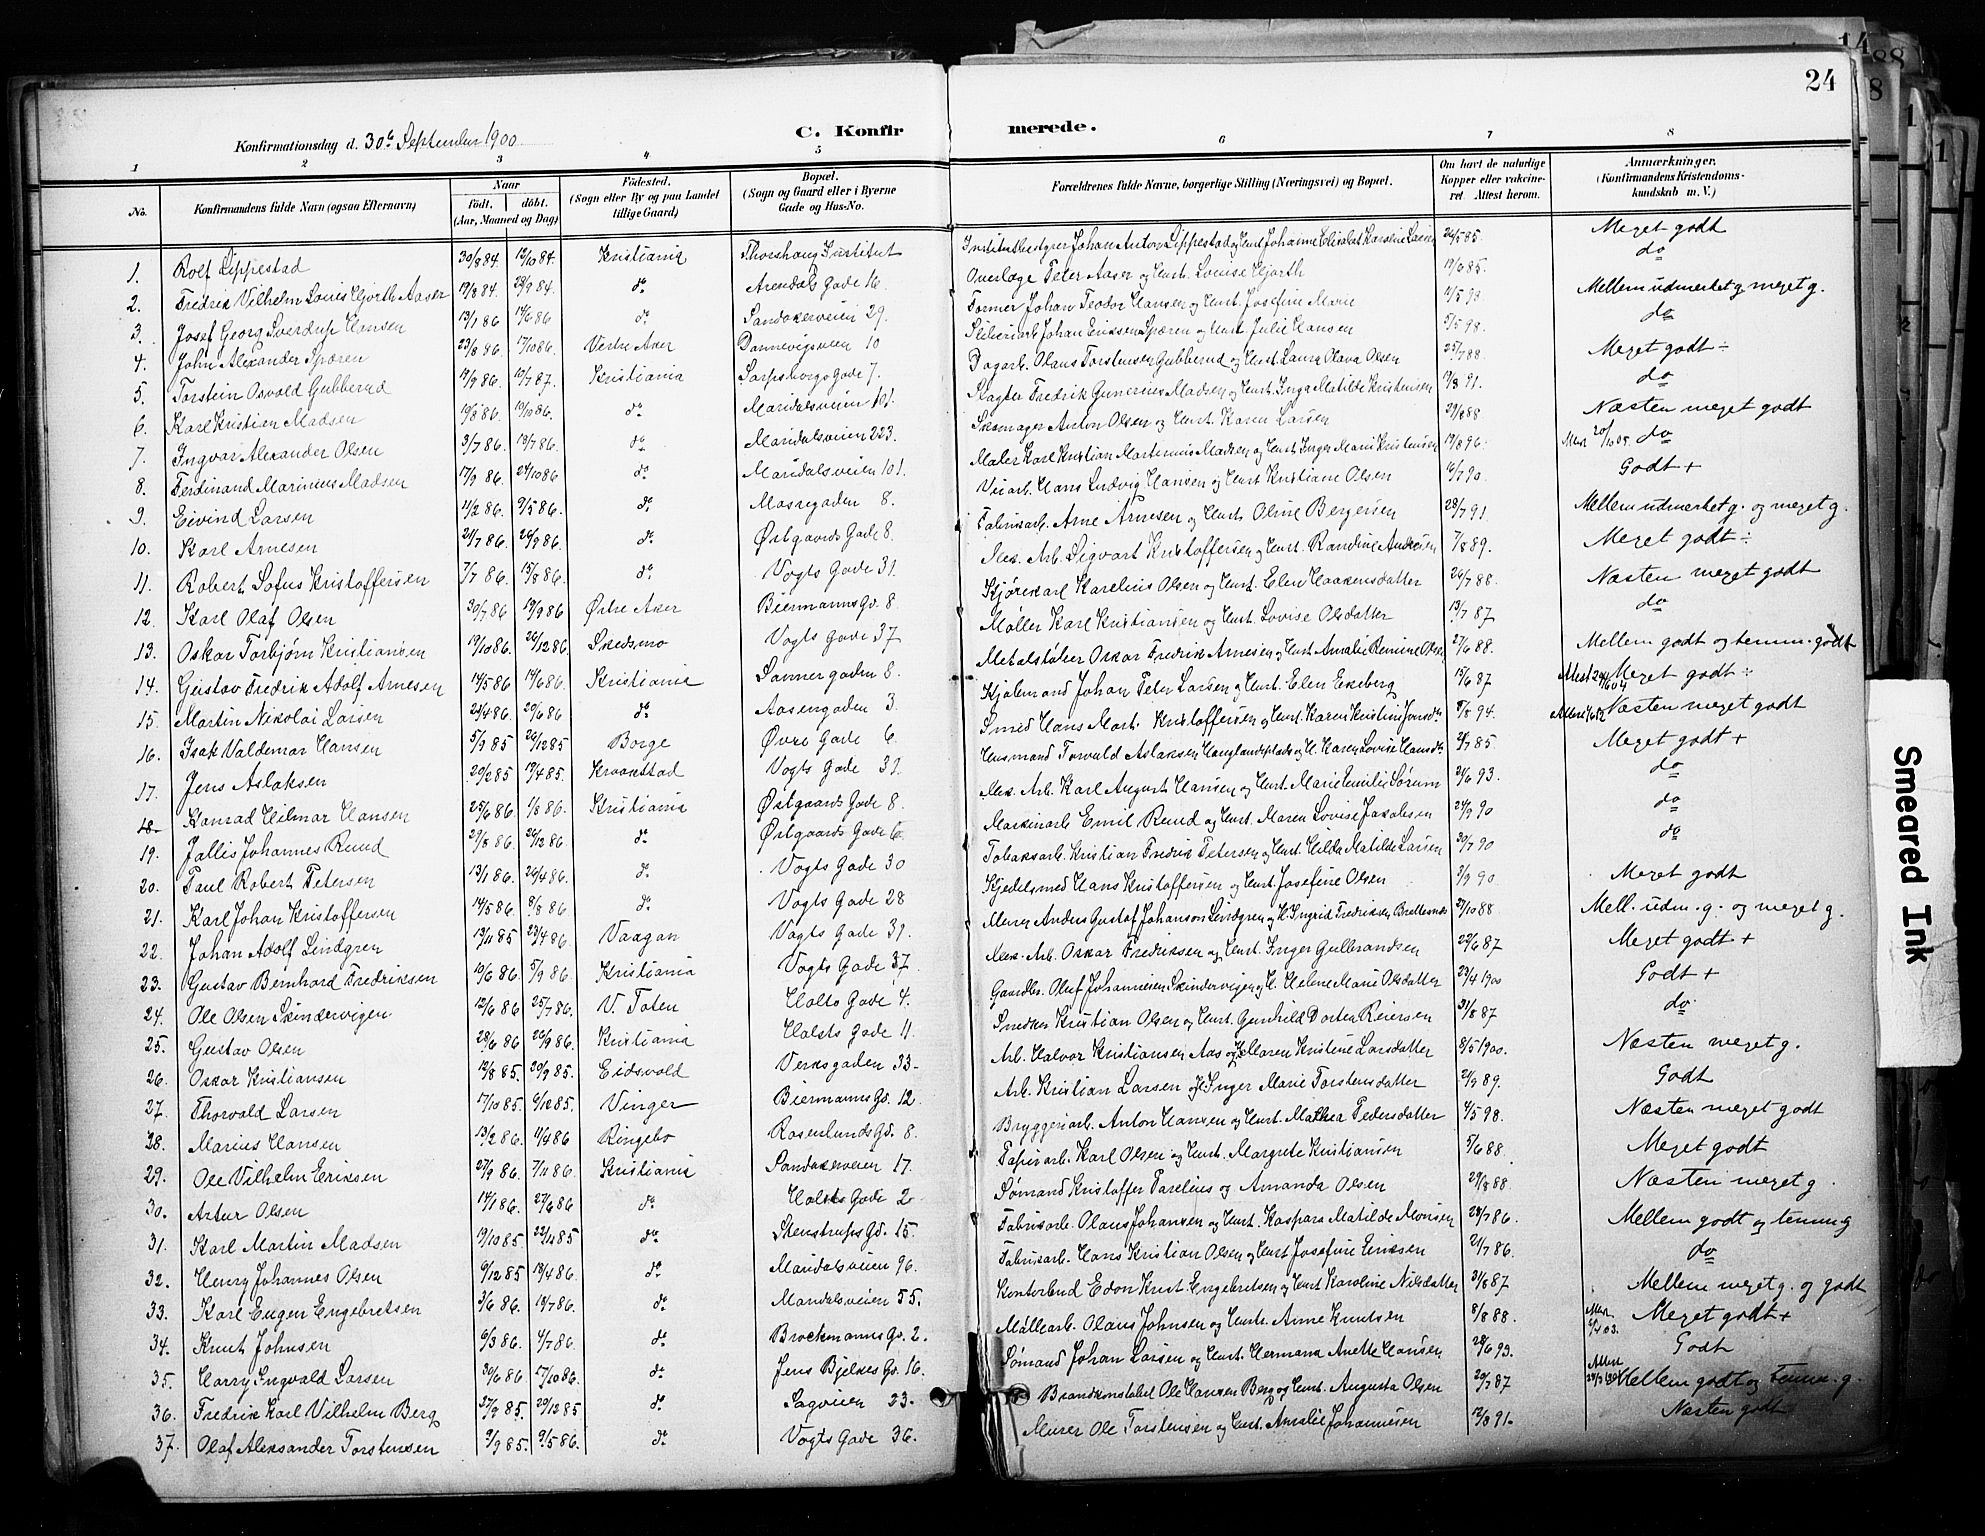 24
C. Konfirmerede.
Konfirmationsdag d. 30te September 1900
1 2 3 4 5 6 7 8
No. Konfirmandens fulde Navn (ogsaa Efternavn) Naar Født. døbt. (Aar, Maaned og Dag) Fødested. (Sogn eller By og paa Landet tillige Gaard) Bopæl. (Sogn og Gaard eller i Byerne Gade og Hus-No. Forældrenes fulde Navne, borgerlige Stilling (Næringsvei) og Bopæl. Om havt de naturlige Kopper eller vakcineret Attest herom. Anmærkninger. (Konfirmandens Kristendomskundskab m. V.)
1. Rolf Lippestad 30/8 84. 12/10 84. Kristiania Thorshaug Institut Johan Anton Lippestad og Johanne Karoline Larsen Meget godt
2. Fredrik Vilhelm Louis Hjorth Aaser 19/8 84 28/9 84. do Arendals Gade 16. Overlæge Peter Aaser og Hust. Louise Hjorth 19/6 85. do
3. Josef Georg Sverdrup Hansen 13/1 86 do Sandakerveien 29. Former Johan Teodor Hansen og Hust. Josefine Marie Mellem udmerket g. meget g.
4. John Alexander Spæren 23/8 86. 17/10 86. Vestre Aker Dannevigsveien 10 Johan Eriksen Spæren og Hust Julie Hansen 5/5 98. do
5. Torstein Osvald Gubberud Kristiania Sarpsborgs Gade 7. Dagarb. Olaus Torstensen Gubberud og Hust. Laura Olava Olsen 25/7 88 Meget godt ÷
6. Karl Kristian Madsen 19/8 86. 10/10 86. do Maridalsveien 101. Slagter Fredrik Gunerius Madsen og Hust. Inga Matilde Kristensen 17/8 91. do
7. Ingvar Alexander Olsen 3/7 86. do Maridalsveien 223. Skomager Anton Olsen og Hust. Karen Larsen Næsten meget godt
8. Ferdinand Marinius Madsen 17/9 86. 24/10 86 do Maridalsveien 101. Maler Karl Kristian Martinius Madsen og Hust Inger Marie Kristensen 19/8 96. do
9. Eivind Larsen 11/2 86. 9/5 86. do Mossegaden 8. Hans Ludvig Hansen og Hust Kristiane Olsen 16/7 90. Godt +
10. Karl Arnesen 21/7 86. 26/9 86. do Østgaards Gade 8. Fabrikarb. Arne Arnesen og Hust. Oline Bergersen 28/7 91. Mellem udmerket g. og meget g.
11. Robert Sofus Kristoffersen 7/7 86. 15/8 86. do Vogts Gade 31. Mek. Arb. Sigvart Kristoffersen og Hust. Randine Andersen 7/8 89. Meget godt ÷
12. Karl Olaf Olsen 30/7 86 19/9 86 Østre Aker Biermanns Gd. 8. Kjørekarl Karelius Olsen og Hust. Elen Haakensdatter 26/7 88. Næsten meget godt
13. Oskar Torbjørn Kristiansen 19/10 86. 26/12 86. Skedsmo Vogts Gade 37 Møller Karl Kristiansen og Hust. Lovise Olsdatter 19/7 87 do
14. Gustav Fredrik Adolf Arnesen 14/5 86 14/6 86. Kristiania Sannergaden 8. Metalstøber Oskar Fredrik Arnesen og Hust. Amalie 27/6 88. Mellem godt og temm. godt
15. Martin Nikolai Larsen 24/4 86. 20/6 86 do Aasengaden 3. Johan Peter Larsen og Hust. Elen Ekeberg 15/6 87 Meget godt ÷
16. Isak Valdemar Hansen 5/9 85 26/12 85 Borge Øvre Gade 6. Smed Hans Mart. Kristoffersen og Hust. Karen Kristine 8/8 94. Næsten meget godt
17. Jens Aslaksen 20/2 85 19/4 85. Kraakstad Vogts Gade 31. Husmand Torvald Aslaksen og H. Karen Lovise Meget godt +
18. Konrad Hilmar Hansen 25/6 86. 1/8 86. Kristiania Østgaards Gade 8. Mek. Arb. Karl August Hansen og Hust. Marie Emilie Sørum 21/6 93. do
19. Jallis Johannes Ruud 29/8 86. 26/12 86. do Østgaards Gade 6. Maskinarb Emil Ruud og Hust. Maren Lovise Jakobsen 24/9 90 do
20. Paul Robert Petersen 13/1 86. 26/4 86. do Vogts Gade 30 Tobaksarb. Kristian Fredrik Petersen og Hust. Hilda Matilde Larsen 30/7 90 do
21. Karl Johan Kristoffersen 14/5 86. 8/8 86. do Vogts Gade 28 Kjedelsmed Hans Kristoffersen og Hust. Josefine Olsen 2/9 90 Meget godt
22. Johan Adolf Lindgren 13/11 85 23/4 86. Vaagan Vogts Gade 31. Murer Anders Gustaf Johanson Lindgren og H. Ingrid Fredriksen 27/10 88. Mell. udm. g. og meget g.
23. Gustav Bernhard Fredriksen 10/6 86. 5/9 86. Kristiania Vogts Gade 37. Mek. Arb. Oskar Fredriksen og Hust. Inger Gulbrandsen 22/6 87 Meget godt +
24. Ole Olsen Skindervigen 12/6 86 25/7 86. V. Toten Holts Gade 4. Gaardbr. Oluf Johannesen Skindervigen og H. Helene Marie Olsdatter 23/4 1900 Godt +
25. Gustav Olsen 28/6 86 26/9 86. Kristiania Holsts Gade 11. Snedker Kristian Olsen og Hust. Gunhild Dortea Reiersen 31/8 87 do
26. Oskar Kristiansen 12/8 85. 20/9 85. Eidsvold Verksgaden 33. Arb. Halvor Kristiansen Aas og H. Maren Kristine Larsdatter 8/5 1900. Næsten meget g.
27. Thorvald Larsen 17/10 85. 6/12 85. Vinger Biermanns Gd. 12. Arb. Kristian Larsen og H. Inger Marie Torstensdatter 21/9 89. Godt
28. Marius Hansen 13/2 86. 11/4 86 Ringebo Rosenlunds Gd. 8. Bryggeriarb. Anton Hansen og Hust. Mathea Pedersdatter 4/5 98. Næsten meget godt
29. Ole Vilhelm Eriksen 27/9 86. 7/11 86. Kristiania Sandakerveien 17. Papirarb. Karl Olsen og Hust. Margrete Kristiansen 5/6 88. Meget godt
30. Artur Olsen 14/1 86. 27/6 86 do Holsts Gade 2 Sømand Kristoffer Parelius og Amanda Olsen 29/8 88. Næsten meget g.
31. Karl Martin Madsen 19/10 85. 22/11 85 do Stenstrups Gd. 15. Fabrikarb. Olaus Johansen og Hust. Kaspara Matilde Monsen 28/7 86. Mellem godt og temm g
32. Henry Johannes Olsen 6/12 85 do Maridalsveien 96. Fabrikarb. Hans Kristian Olsen og Hust Josefine Eriksen 21/7 86. do
33. Karl Eugen Engebretsen 3/6 86. 19/7 86. do Maridalsveien 55. Kontorbud Edon Krist. Engebretsen og Hust Karoline Nilsdatter 31/8 87 Mellem meget g. og godt
34. Knut Johnsen 6/3 86. 4/7 86. do Brochmanns Gd. 2. Møllearb. Olaus Johnsen og Hust. Anne Knutsen 8/8 88. Meget godt +
35. Harry Ingvald Larsen 30/6 86 17/10 86. do Jens Bjelkes Gd. 16. Sømand Johan Larsen og Hust. Hermana Anette Hansen 28/6 93. Godt
36. Fredrik Karl Vilhelm Berg 27/9 85. 29/12 85 do Sagveien 23. Brandkonstabel Ole Hansen Berg og Hust. Augusta Olsen 20/7 87 Mellem godt og temm. g.
37. Olaf Aleksander Torstensen 9/9 85. 9/5 86. do Vogts Gade 36. Murer Ole Torstensen og Hust. Amalie Johannesen 12/8 91. Næsten godt
Smeared Ink